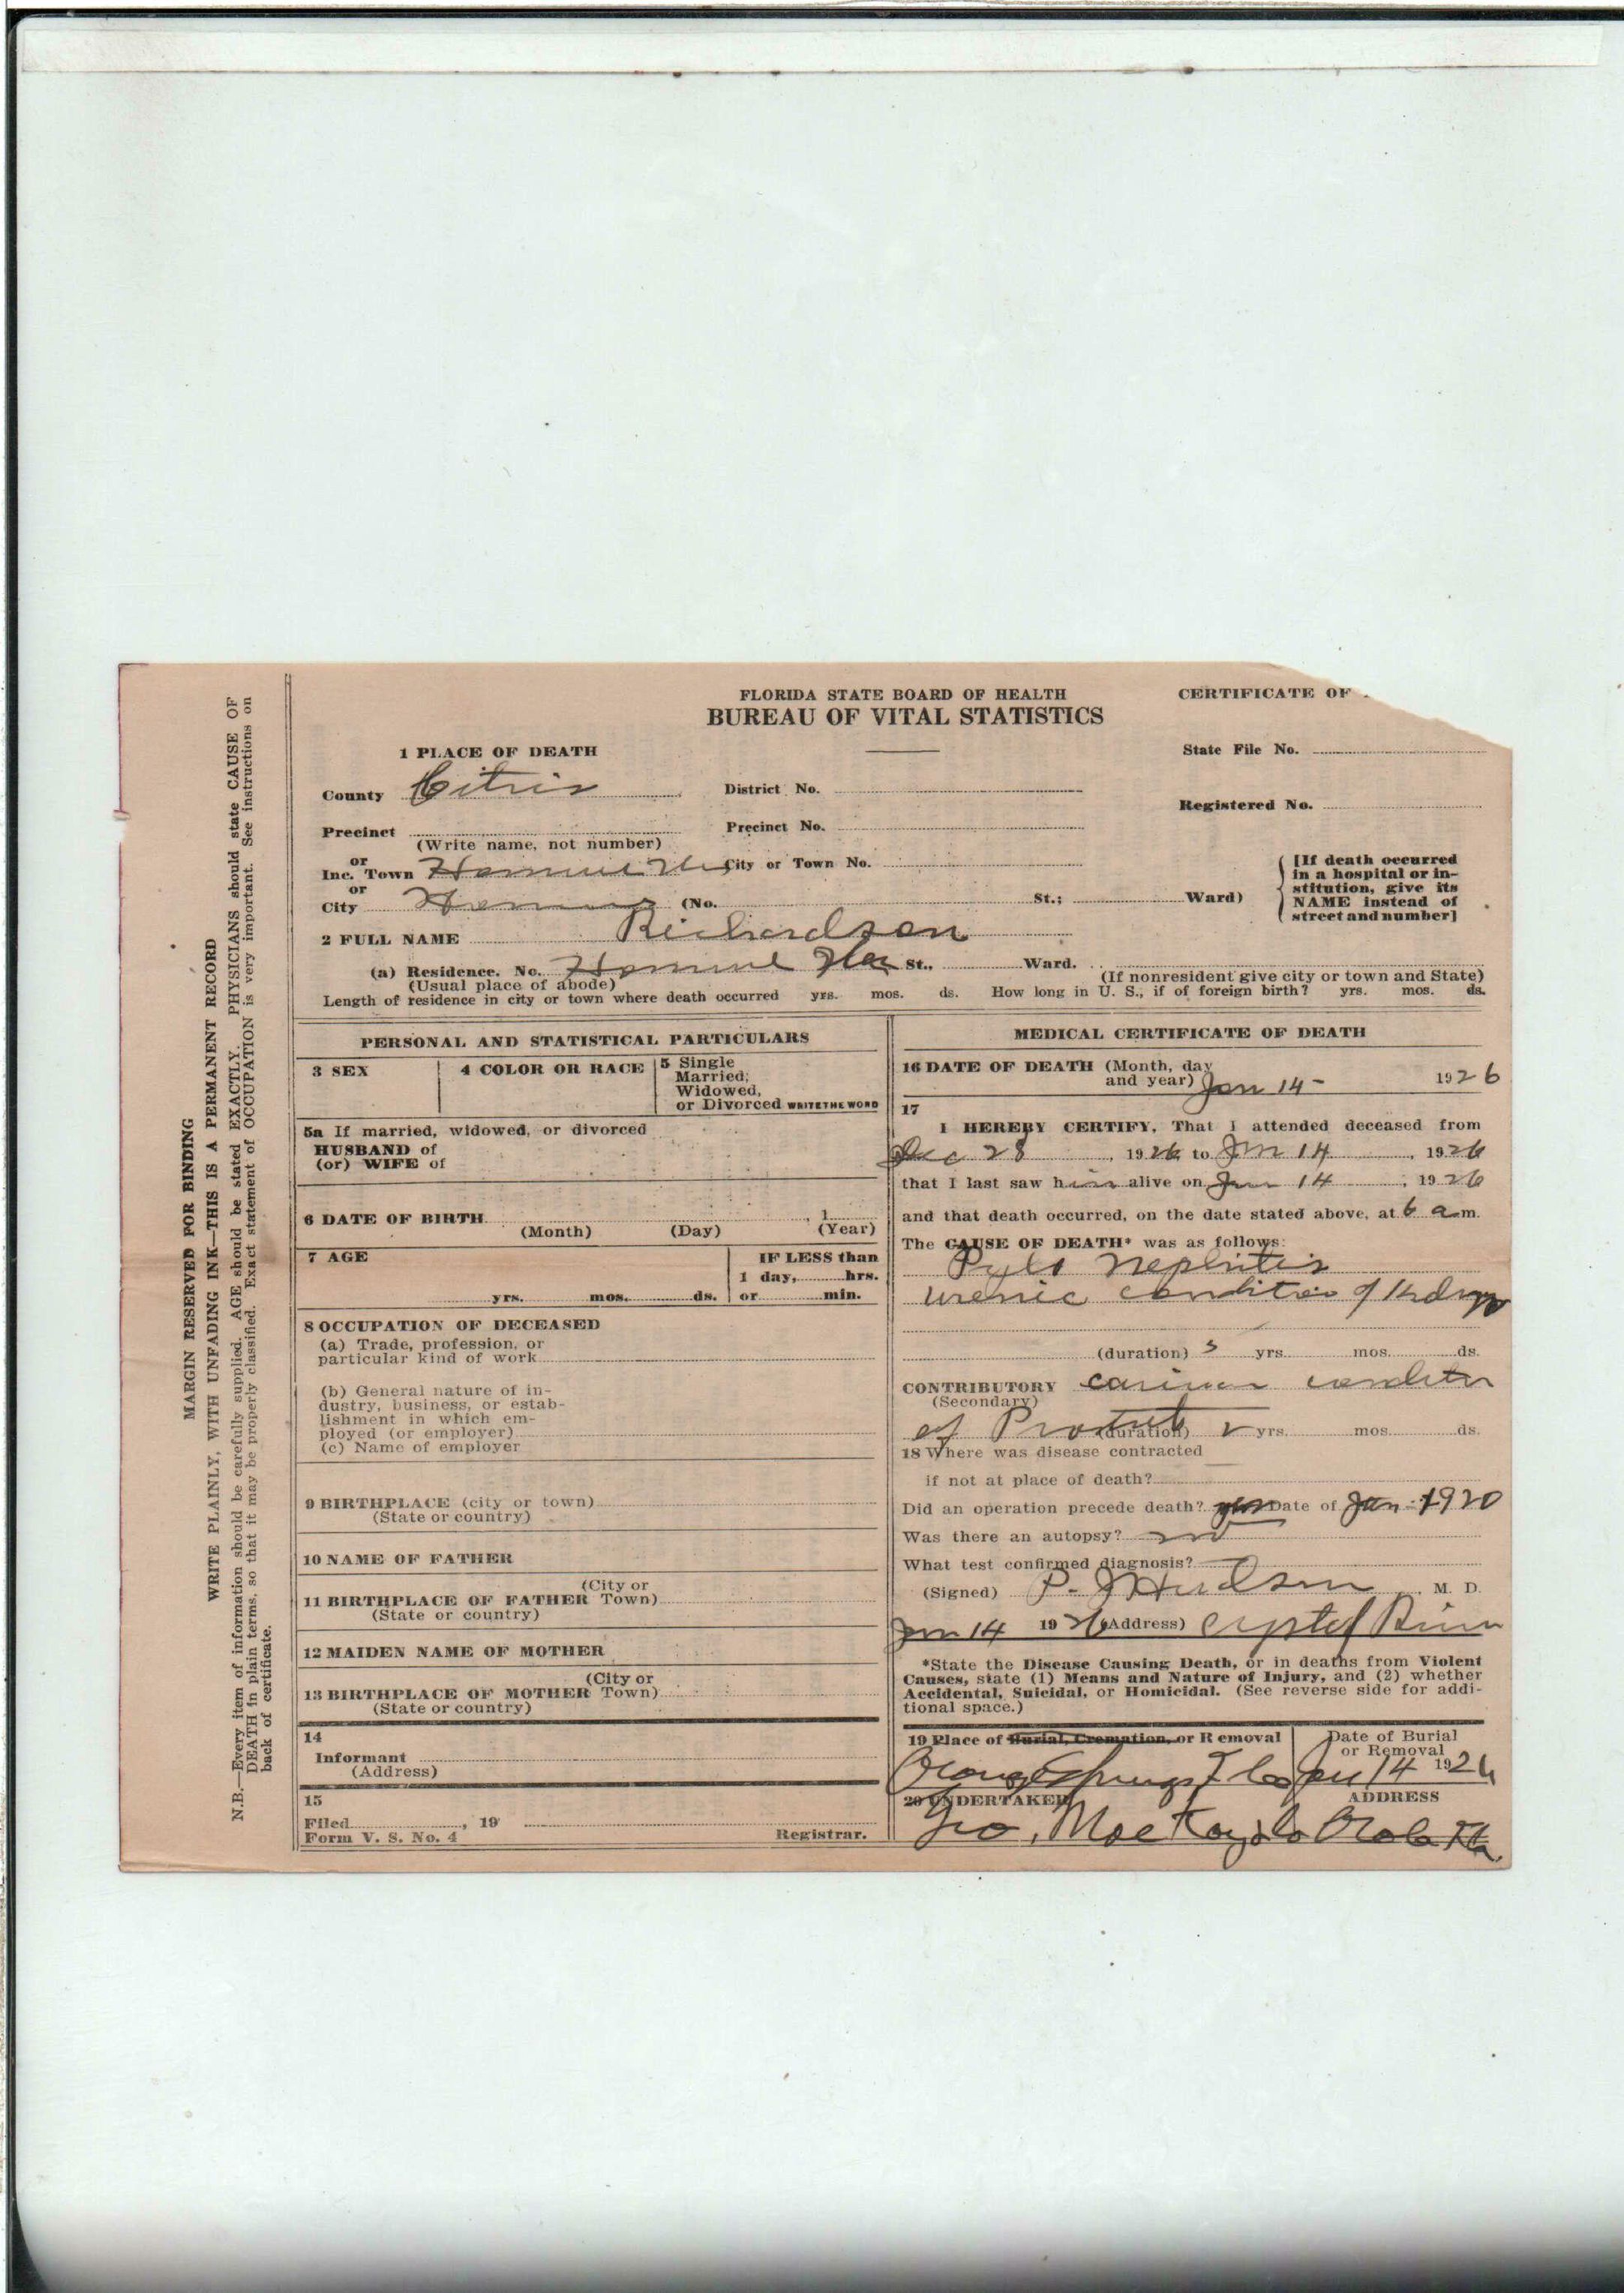 FLORIDA STATE BOARD OF HEALTH
BUREAU OF VITAL STATISTICS
CERTIFICATE OF
1 PLACE OF DEATH
State File No.
County Citrus
District No.
Registered No.
Precinct
(Write name, not number)
Precinct No.
or
Inc. Town
City or Town No.
or
City
(No. St.; Ward)
[If death occurred
in a hospital or in-
stitution, give its
NAME instead of
street and number]
2 FULL NAME Richardson
(a) Residence. No. St., Ward.
(Usual place of abode)
(If nonresident give city or town and State)
Length of residence in city or town where death occurred yrs. mos. ds. How long in U. S., if of foreign birth? yrs. mos. ds.
PERSONAL AND STATISTICAL PARTICULARS
3 SEX
4 COLOR OR RACE
5 Single
Married,
Widowed,
or Divorced WRITE THE WORD
5a If married, widowed, or divorced
HUSBAND of
(or) WIFE of
6 DATE OF BIRTH , 1
(Month) (Day) (Year)
7 AGE
IF LESS than
1 day, hrs.
yrs. mos. ds. or min.
8 OCCUPATION OF DECEASED
(a) Trade, profession, or
particular kind of work
(b) General nature of in-
dustry, business, or estab-
lishment in which em-
ployed (or employer)
(c) Name of employer
9 BIRTHPLACE (city or town)
(State or country)
10 NAME OF FATHER
11 BIRTHPLACE OF FATHER (City or Town)
(State or country)
12 MAIDEN NAME OF MOTHER
13 BIRTHPLACE OF MOTHER (City or Town)
(State or country)
14
Informant
(Address)
15
Filed , 19
Registrar.
Form V. S. No. 4
MEDICAL CERTIFICATE OF DEATH
16 DATE OF DEATH (Month, day
and year) Jan 14- 1926
17
I HEREBY CERTIFY, That I attended deceased from
Dec 28, 1926 to Jan 14, 1926
that I last saw him alive on Jan 14, 1926
and that death occurred, on the date stated above, at 6 a.m.
The CAUSE OF DEATH* was as follows:
Pylo Nephritis
uremic condition of
(duration) yrs. mos. ds.
CONTRIBUTORY
(Secondary)
of (duration) yrs. mos. ds.
18 Where was disease contracted
if not at place of death?
Did an operation precede death? yes Date of Jan - 1920
Was there an autopsy? no
What test confirmed diagnosis?
(Signed) P. J Hudson M. D.
Jan 14 1926 (Address) Crystal River
*State the Disease Causing Death, or in deaths from Violent
Causes, state (1) Means and Nature of Injury, and (2) whether
Accidental, Suicidal, or Homicidal. (See reverse side for addi-
tional space.)
19 Place of Burial, Cremation, or Removal
Date of Burial
or Removal
Orange Springs Fla Jan 14 1926
20 UNDERTAKER
ADDRESS
Geo. MacKay & Co Ocala Fla.
MARGIN RESERVED FOR BINDING
WRITE PLAINLY, WITH UNFADING INK—THIS IS A PERMANENT RECORD
N.B.—Every item of information should be carefully supplied. AGE should be stated EXACTLY. PHYSICIANS should state CAUSE OF
DEATH in plain terms, so that it may be properly classified. Exact statement of OCCUPATION is very important. See instructions on
back of certificate.